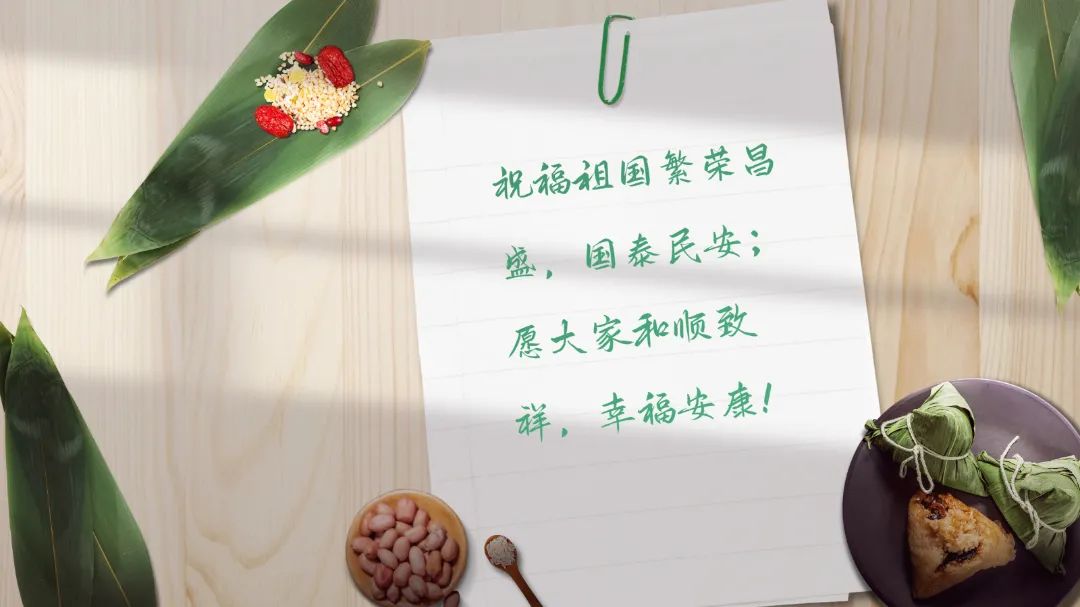 祝福祖国繁荣昌
盛，国泰民安；
愿大家和顺致
祥，幸福安康！